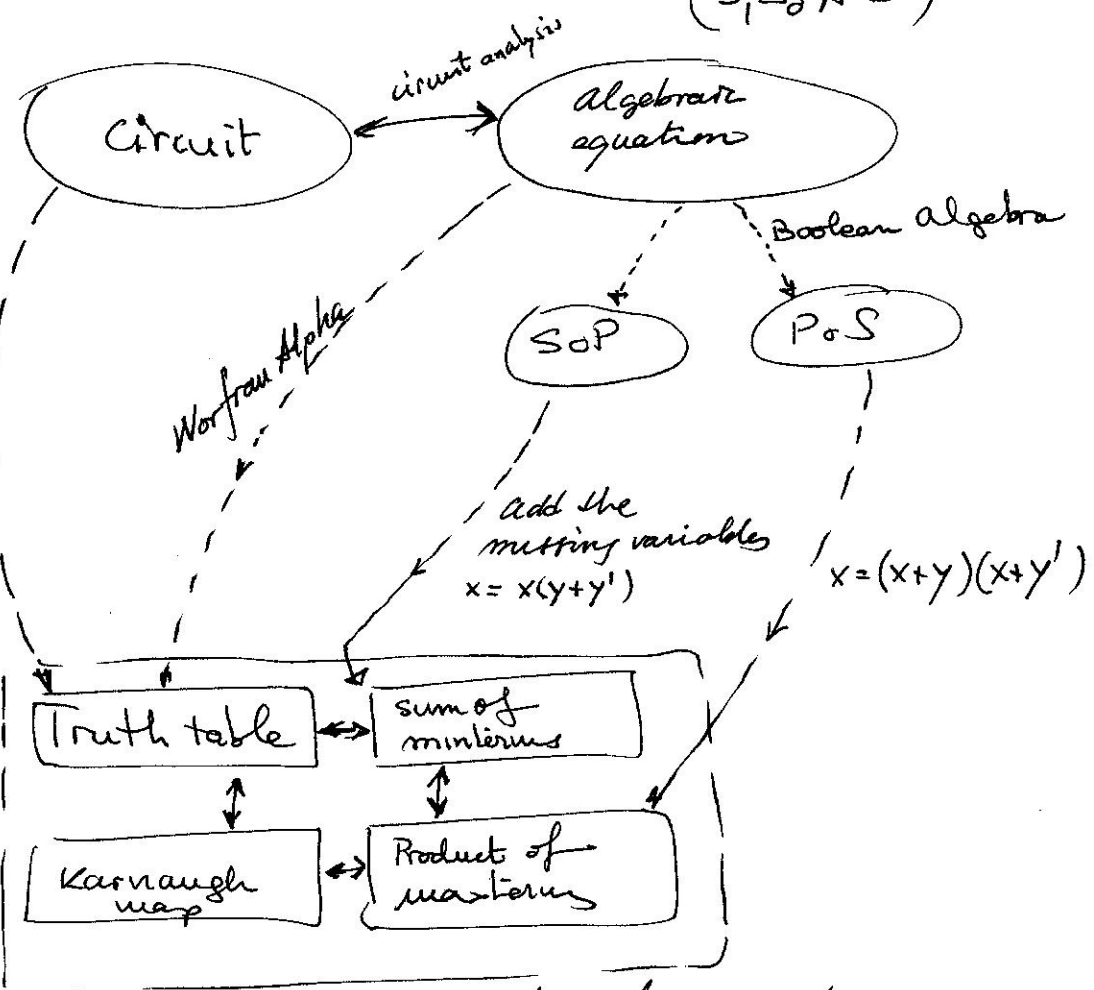 circuit analysis
Circuit
algebraic
equation
Boolean Algebra
SoP
PoS
Worfran Alpha
add the
missing variables
x = x(y+y')
x = (x+y)(x+y')
Truth table
sum of
minterms
Karnaugh
map
Product of
maxterms